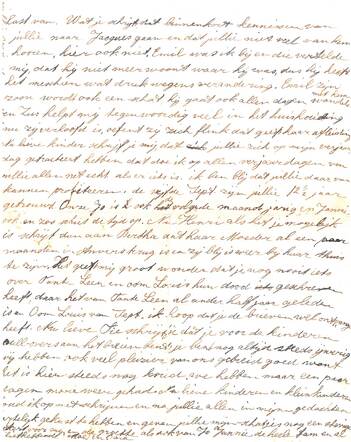 Last van. Wat je schrijft dat binnenkort kennissen van
jullie naar Jacques gaan en dat jullie niet veel van hun
horen, hier ook niet. Emiel was ook bij en die vertelde
mij, dat hij niet meer woont waar hij was, dus hij heeft
het misschien wat druk wegens verandering. Emiel zijn
zoon wordt ook een schat hij gaat ook allen dagen wandelen
en Zus helpt mij tegenwoordig veel in het huishouding
nu zij verloofd is, oefent zij zich flink dat geeft haar afleiding
Nu lieve kinder schrijft je mij dat jullie zich op mijn verjaar
dag getracteert hebben dat doe ik op allen verjaardagen van
jullie allen net echt als er iets is. ik ben blij dat jullie daar van
kunnen profiteren. de vijfde Sept zijn jullie 12½ jaar
getrouwd. Onze Jo is ook het volgende maand jarig en Jannie
ook en zoo schiet de tijd op. Henri als het je mogelijk
is schrijf dan aan Bertha dat haar Moeder al een paar
maanden in Anvers is en zij blij is weer bij haar thuis
te zijn. Het geeft mij groot wonder dat je nog nooit iets
over Tante Leen en oom Louis hun dood geschreven
heeft daar het van Tante Leen al ander half jaar geleden
is en Oom Louis van Sept. ik hoop dat je de brieven wel ontvangen
heeft. Nu lieve Fie schrijf je dat je voor de kinderen
pull-overs aan het breien bent, je bent nog altijd steeds ijverig
wij hebben ook veel plezier van ons gebreid goed. want
het is hier steeds nog koud. we hebben maar een paar
dagen mooi weer gehad. Nu lieve kinderen en kleinkinderen
eind ik op met schrijven en na jullie allen in mijn gedachten
hartelijk gekust te hebben en geven jullie mijn schatjes nog een stevige
kus voor mij de groeten als ook van Jo Jannie de heele fam en de